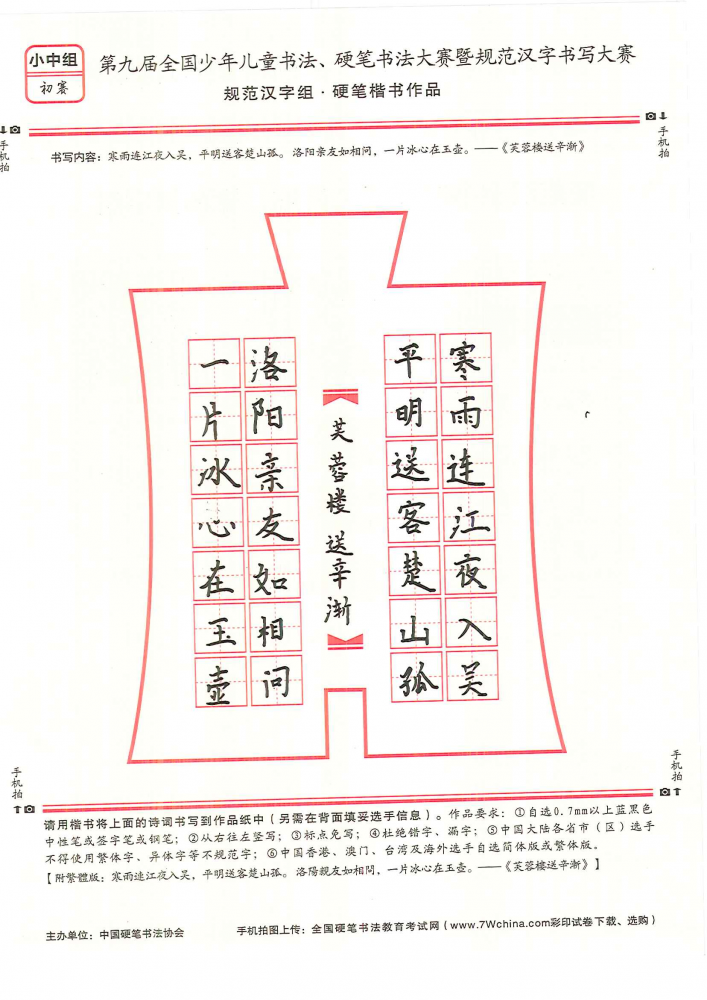 小中组
初赛
第九届全国少年儿童书法、硬笔书法大赛暨规范汉字书写大赛
规范汉字组·硬笔楷书作品
手机拍
手机拍
书写内容：寒雨连江夜入吴，平明送客楚山孤。洛阳亲友如相问，一片冰心在玉壶。——《芙蓉楼送辛渐》
寒雨连江夜入吴
平明送客楚山孤
芙蓉楼 送辛渐
洛阳亲友如相问
一片冰心在玉壶
手机拍
手机拍
请用楷书将上面的诗词书写到作品纸中（另需在背面填妥选手信息）。作品要求：①自选0.7mm以上蓝黑色
中性笔或签字笔或钢笔；②从右往左竖写；③标点免写；④杜绝错字、漏字；⑤中国大陆各省市（区）选手
不得使用繁体字、异体字等不规范字；⑥中国香港、澳门、台湾及海外选手自选简体版或繁体版。
【附繁體版：寒雨連江夜入吳，平明送客楚山孤。洛陽親友如相問，一片冰心在玉壺。——《芙蓉樓送辛漸》】
主办单位：中国硬笔书法协会
手机拍图上传：全国硬笔书法教育考试网（www.7Wchina.com彩印试卷下载、选购）